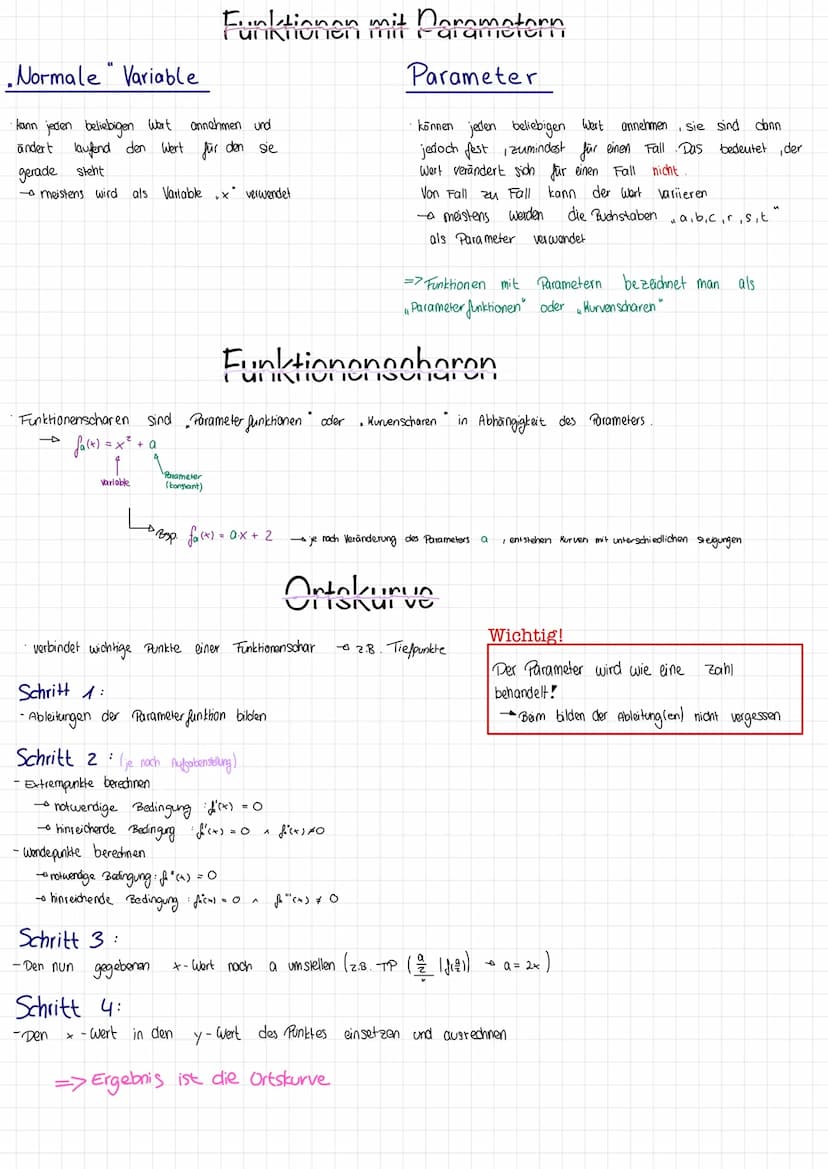 Funktionen mit Parametern
„Normale“ Variable
· kann jeden beliebigen Wert annehmen und
ändert laufend den Wert für den sie
gerade steht
→ meistens wird als Variable „x“ verwendet
Parameter
· können jeden beliebigen Wert annehmen, sie sind dann
jedoch fest, zumindest für einen Fall. Das bedeutet, der
Wert verändert sich für einen Fall nicht.
Von Fall zu Fall kann der Wert variieren
→ meistens werden die Buchstaben „a,b,c,r,s,t“
als Parameter verwendet
=> Funktionen mit Parametern bezeichnet man als
„Parameterfunktionen“ oder „Kurvenscharen“
Funktionenscharen
· Funktionenscharen sind „Parameterfunktionen“ oder „Kurvenscharen“ in Abhängigkeit des Parameters.
→ fa(x) = x² + a
Variable
Parameter
(konstant)
↳ Bsp. fa(x) = a·x + 2 → je nach Veränderung des Parameters a, entstehen Kurven mit unterschiedlichen Steigungen
Ortskurve
· verbindet wichtige Punkte einer Funktionenschar → z.B. Tiefpunkte
Wichtig!
Der Parameter wird wie eine Zahl
behandelt!
→ Beim bilden der Ableitung(en) nicht vergessen
Schritt 1:
- Ableitungen der Parameterfunktion bilden
Schritt 2: (je nach Aufgabenstellung)
- Extrempunkte berechnen
→ notwendige Bedingung: f'(x) = 0
→ hinreichende Bedingung: f'(x) = 0 ∧ f''(x) ≠ 0
- Wendepunkte berechnen
→ notwendige Bedingung: f''(x) = 0
→ hinreichende Bedingung: f''(x) = 0 ∧ f'''(x) ≠ 0
Schritt 3:
- Den nun gegebenen x-Wert nach a umstellen (z.B. TP (a/2 | f(a/2)) → a = 2x)
Schritt 4:
- Den x-Wert in den y-Wert des Punktes einsetzen und ausrechnen
=> Ergebnis ist die Ortskurve